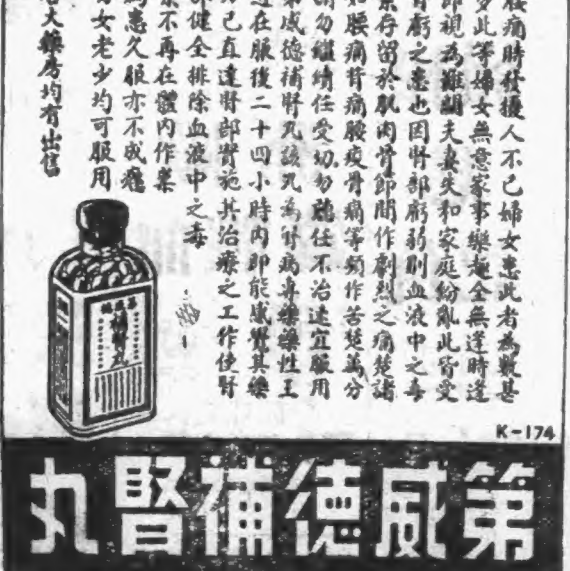 腰痛時發擾人不已婦女患此者為數甚
多此等婦女無意家事樂趣全無逹時逢
即視為難關夫妻失和家庭紛亂此皆受
腎虧之患也因腎部虧弱則血液中之毒
素存留於肌肉骨節間作劇烈之痛楚諸
如腰痛背痛腰痠骨痛等頻作苦楚萬分
請勿繼續任受切勿聽任不治速宜服用
第威德補腎丸該丸為腎病專藥藥性王
道在服後二十四小時內即能感覺其藥
力已直達腎部實施其治療之工作使腎
部健全排除血液中之毒
素不再在體內作祟
為患久服亦不成癮
男女老少均可服用
各大藥房均有出售
第威德
補腎丸
K-174
第威德補腎丸